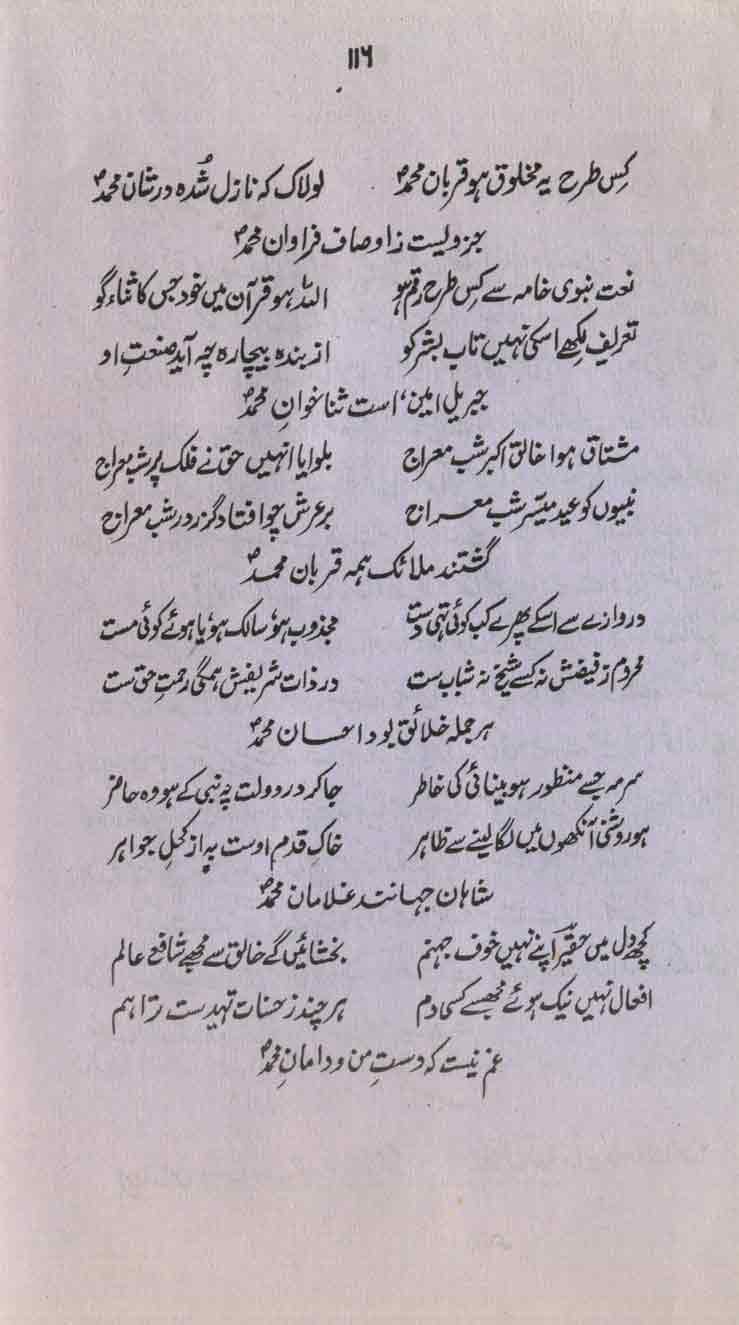 ۱۱۶
کس طرح یہ مخلوق ہو قربان محمدؐ لولاک کہ نازل شُدہ در شان محمدؐ
جزویست ز اوصاف فراوان محمدؐ
نعت نبوی خامہ سے کِس طرح رقم ہو اللہ ہو قرآن میں خود جس کا ثناء گو
تعریف لکھے اسکی نہیں تاب بشر کو از بندہ بیچارہ چہ آید صنعتِ او
جبریل امیں، است ثنا خوانِ محمدؐ
مشتاق ہوا خالق اکبر شب معراج بلوایا انہیں حق نے فلک پر شب معراج
نبیوں کو عید میسّر شب معراج بر عرش چو افتاد گزر در شب معراج
گشتند ملائک ہمہ قربان محمدؐ
دروازے سے اسکے پھرے کب کوئی تہی دست مجذوب ہو، سالک ہو، یا ہوئے کوئی مست
محروم ز فیضش نہ کسے شیخ نہ شاب ست در ذات شریفش ہمگی رحمتِ حق ست
ہر جملہ خلائق بود احسان محمدؐ
سرمہ جسے منظور ہو بینائی کی خاطر جا کر در دولت پہ نبی کے ہو وہ حاضر
ہو روشنی آنکھوں میں لگا لینے سے ظاہر خاکِ قدم اوست بہ از کحلِ جواہر
شاہان جہانند غلامان محمدؐ
کچھ دل میں حقیرؔ اپنے نہیں خوف جہنم بخشائیں گے خالق سے مجھے شافع عالم
افعال نہیں نیک ہوئے مجھسے کسی دم ہر چند ز حسنات تہیدست تراہم
غم نیست کہ دستِ من و دامانِ محمدؐ